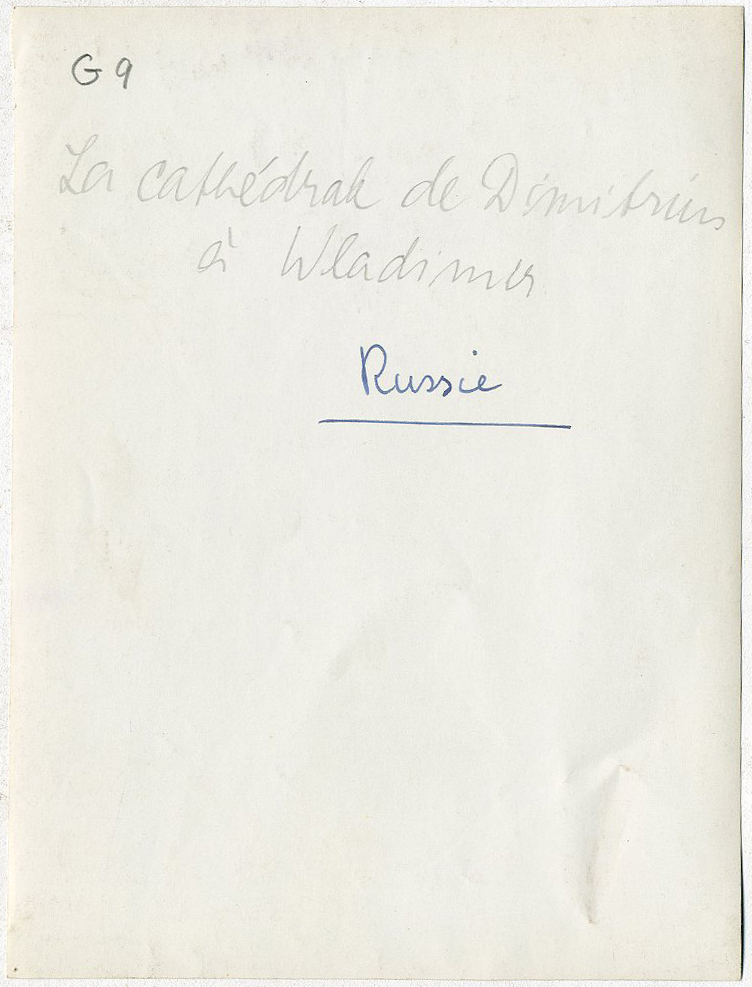 G 9
La cathédrale de Dimitrius
à Wladimir
Russie